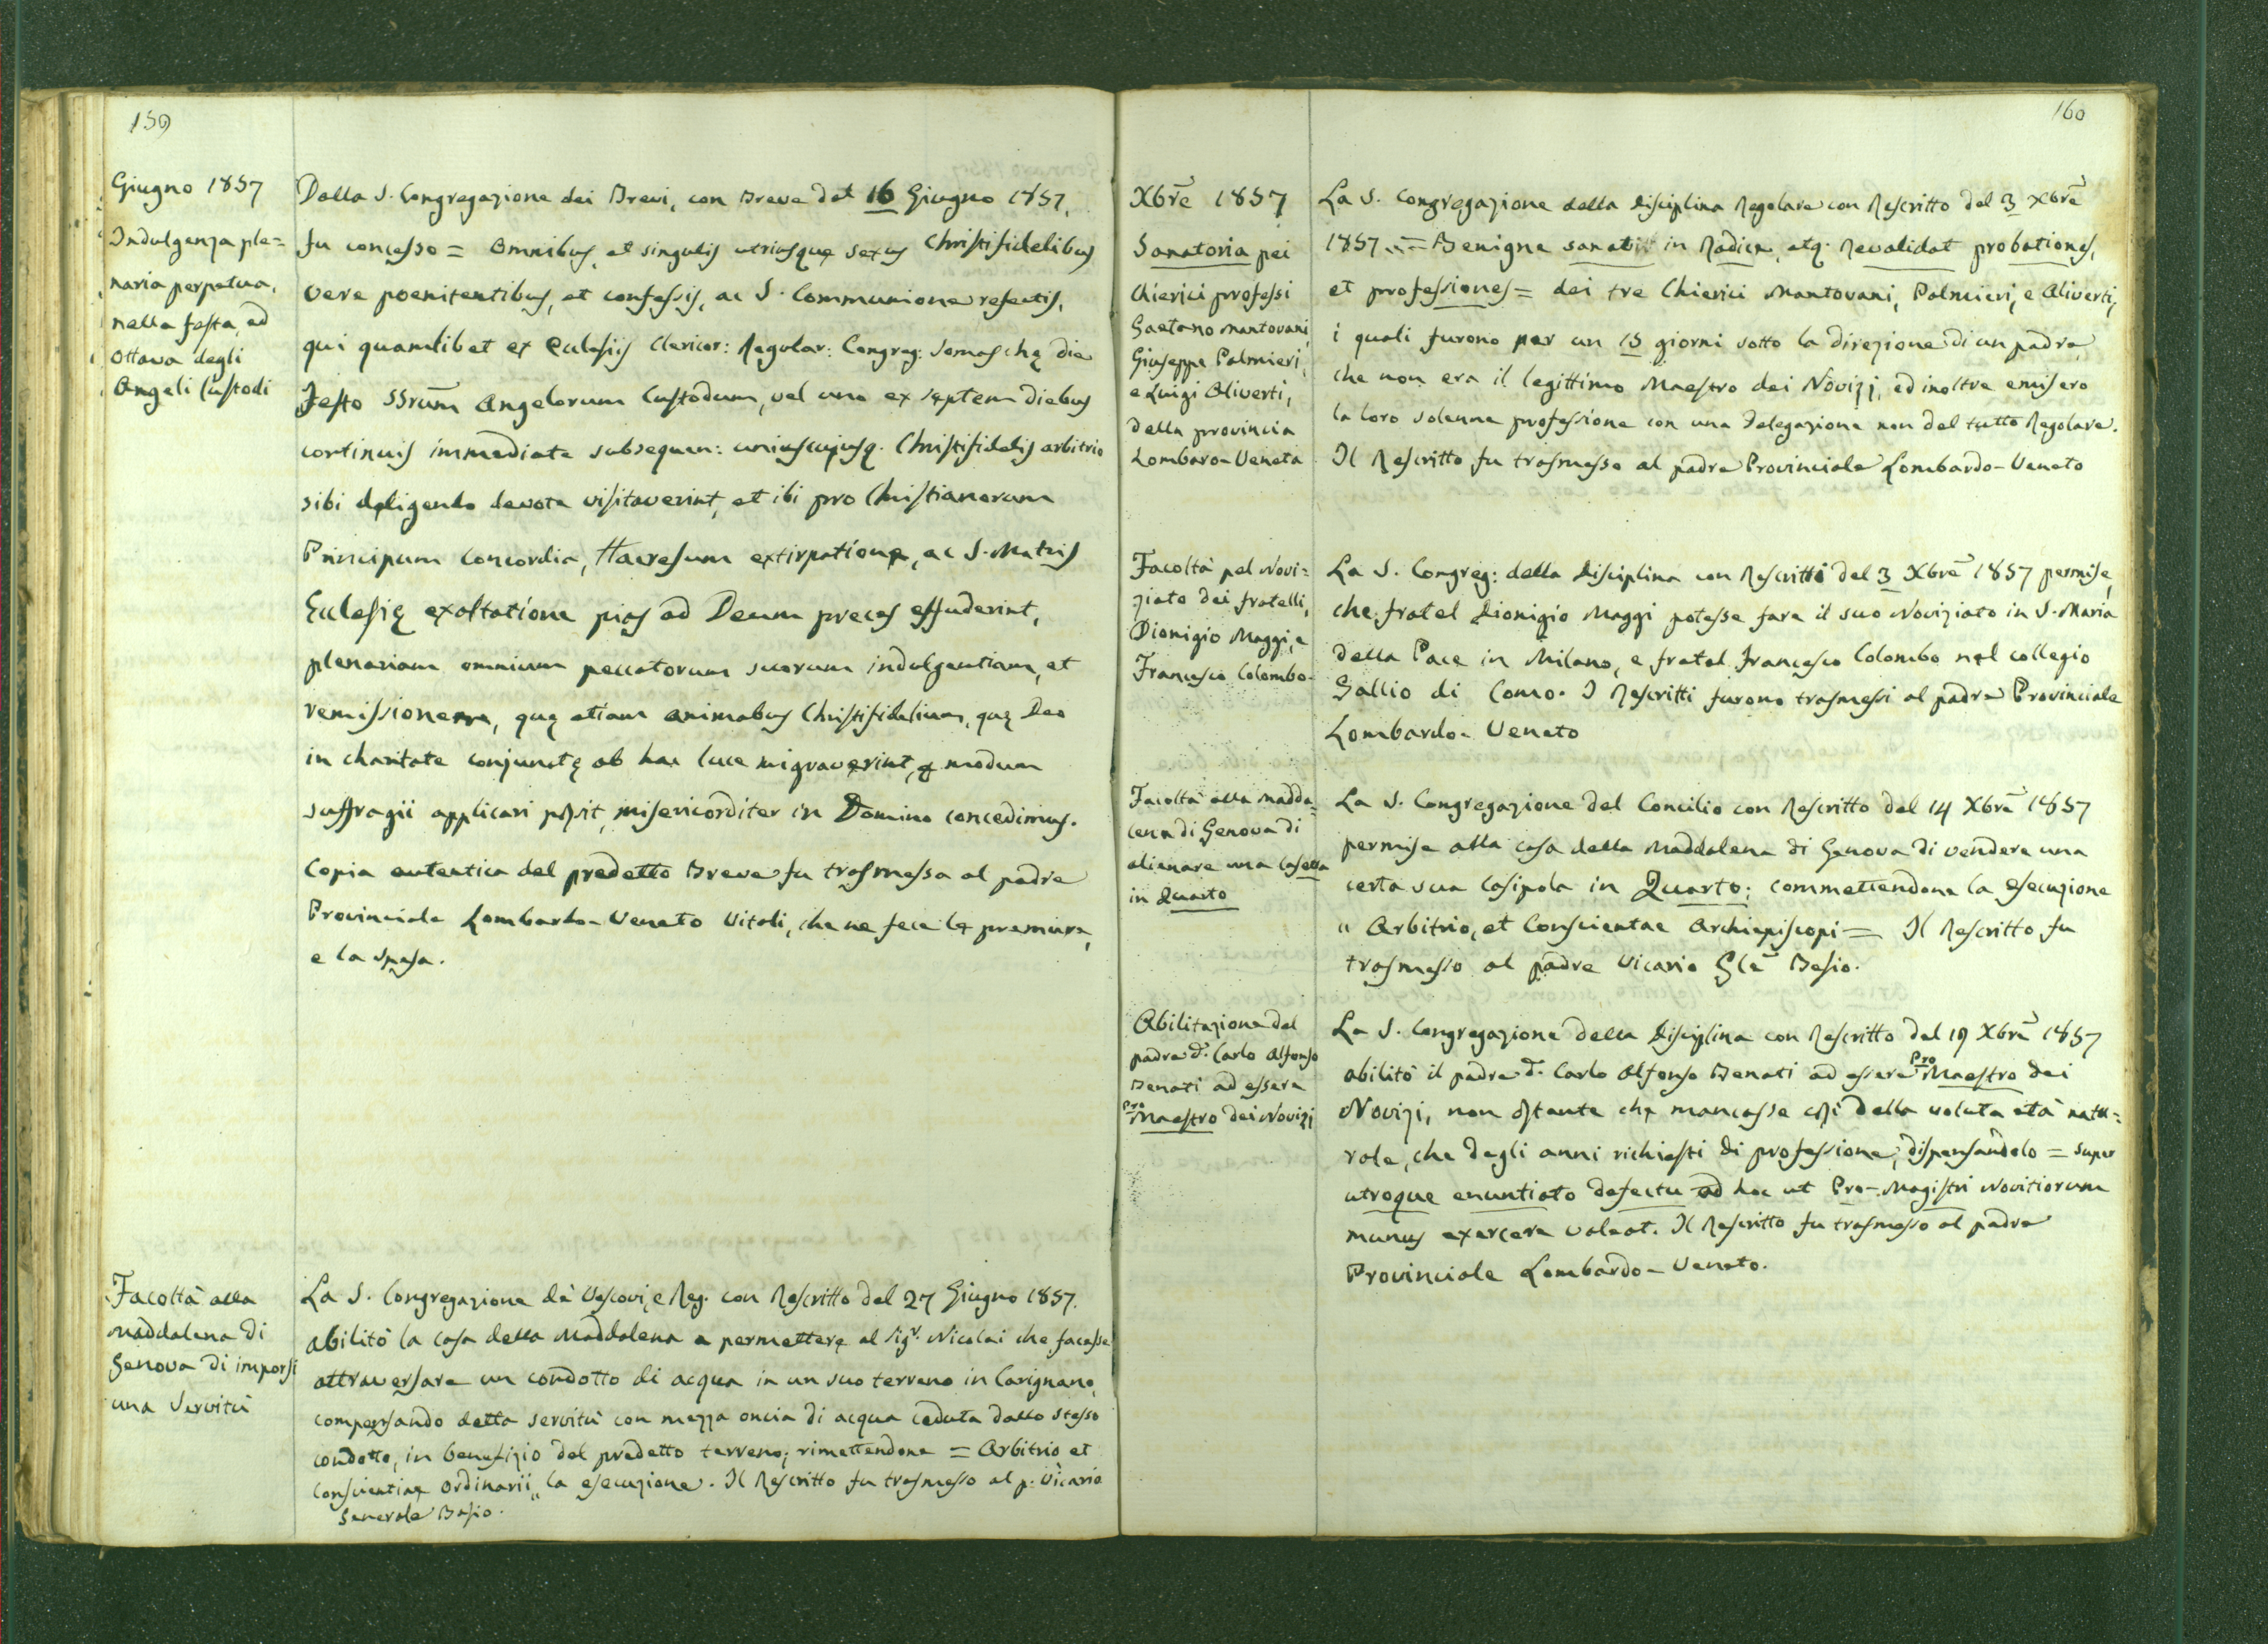 159
Giugno 1857
Indulgenza ple=
naria perpetua,
nella festa, ed
Ottava degli
Angeli Custodi
Dalla S. Congregazione dei Brevi, con Breve del 16 Giugno 1857,
fu concesso = Omnibus, et singulis utriusque sexus Christifidelibus
vere poenitentibus, et confessis, ac S. Communione refectis,
qui quamlibet ex Ecclesiis Clericor: Regular: Congreg: Somaschę die
Festo SSrum Angelorum Custodum, vel uno ex septem diebus
continuis immediate subsequen: uniuscujusq. Christifidelis arbitrio
sibi deligendo devote visitaverint, et ibi pro Christianorum
Principum Concordia, Haeresum extirpatione, ac S. Matris
Eclesię exaltatione pias ad Deum preces effuderint,
plenariam omnium peccatorum suorum indulgentiam, et
remissionem, quę etiam animabus Christifidelium, quę Deo
in charitate conjunctę ab hac luce migraverint, p modum
suffragii applicari possit, misericorditer in Domino concedimus.
Copia autentica del predetto Breve fu trasmessa al padre
Provinciale Lombardo-Veneto Vitali, che ne fece le premure,
e la spesa.
Facoltà alla
Maddalena di
Genova di imporsi
una Servitù
La S. Congregazione de' Vescovi, e Reg. con Rescritto del 27 Giugno 1857.
abilitò la Casa della Maddalena a permettere al Sigr. Nicolai che facesse
attraversare un condotto di acqua in un suo terreno in Carignano,
compensando detta servitù con mezza oncia di acqua ceduta dallo stesso
condotto, in benefizio del predetto terreno; rimettendone = Arbitrio et
Conscientiae Ordinarii „ la esecuzione. Il Rescritto fu trasmesso al p. Vicario
Generale Besio.
160
Xbre 1857
Sanatoria pei
Chierici professi
Gaetano Mantovani,
Giuseppe Palmieri,
e Luigi Aliverti,
della provincia
Lombaro-Veneta
La S. Congregazione della Disciplina Regolare con Rescritto del 3 Xbre
1857 = Benigne sanavit in Radice, atq. Revalidat probationes,
et professiones = dei tre Chierici Mantovani, Palmieri, e Aliverti,
i quali furono per un 15 giorni sotto la direzione di un padre,
che non era il legittimo Maestro dei Novizj, ed inoltre emisero
la loro solenne professione con una Delegazione non del tutto Regolare.
Il Rescritto fu trasmesso al padre Provinciale Lombardo-Veneto
Facoltà pel Novi=
ziato dei fratelli,
Dionigio Maggi, e
Francesco Colombo.
La S. Congreg: della Disciplina con Rescritti del 3 Xbre 1857 permise,
che fratel Dionigio Maggi potesse fare il suo Noviziato in S. Maria
della Pace in Milano, e fratel Francesco Colombo nel collegio
Gallio di Como. I Rescritti furono trasmessi al padre Provinciale
Lombardo-Veneto
Facoltà alla Madda=
lena di Genova di
alienare una Casetta
in Quarto
La S. Congregazione del Concilio con Rescritto del 14 Xbre 1857
permise alla casa della Maddalena di Genova di vendere una
certa sua Casipola in Quarto; commettendone la esecuzione
„ Arbitrio, et Conscientae Archiepiscopi = Il Rescritto fu
trasmesso al padre Vicario Gle Besio.
Abilitazione del
padre d. Carlo Alfonso
Benati ad essere
Pro
Maestro dei Novizj
La S. Congregazione della Disciplina con Rescritto del 19 Xbre 1857
abilitò il padre d. Carlo Alfonso Benati ad essere Pro Maestro dei
Novizj, non ostante che mancasse così della voluta età natu=
rale, che degli anni richiesti di professione, dispensandolo = super
utroque enuntiato defectu ad hoc ut Pro-Magistri Novitiorum
munus exercere valeat. Il Rescritto fu trasmesso al padre
Provinciale Lombardo-Veneto.